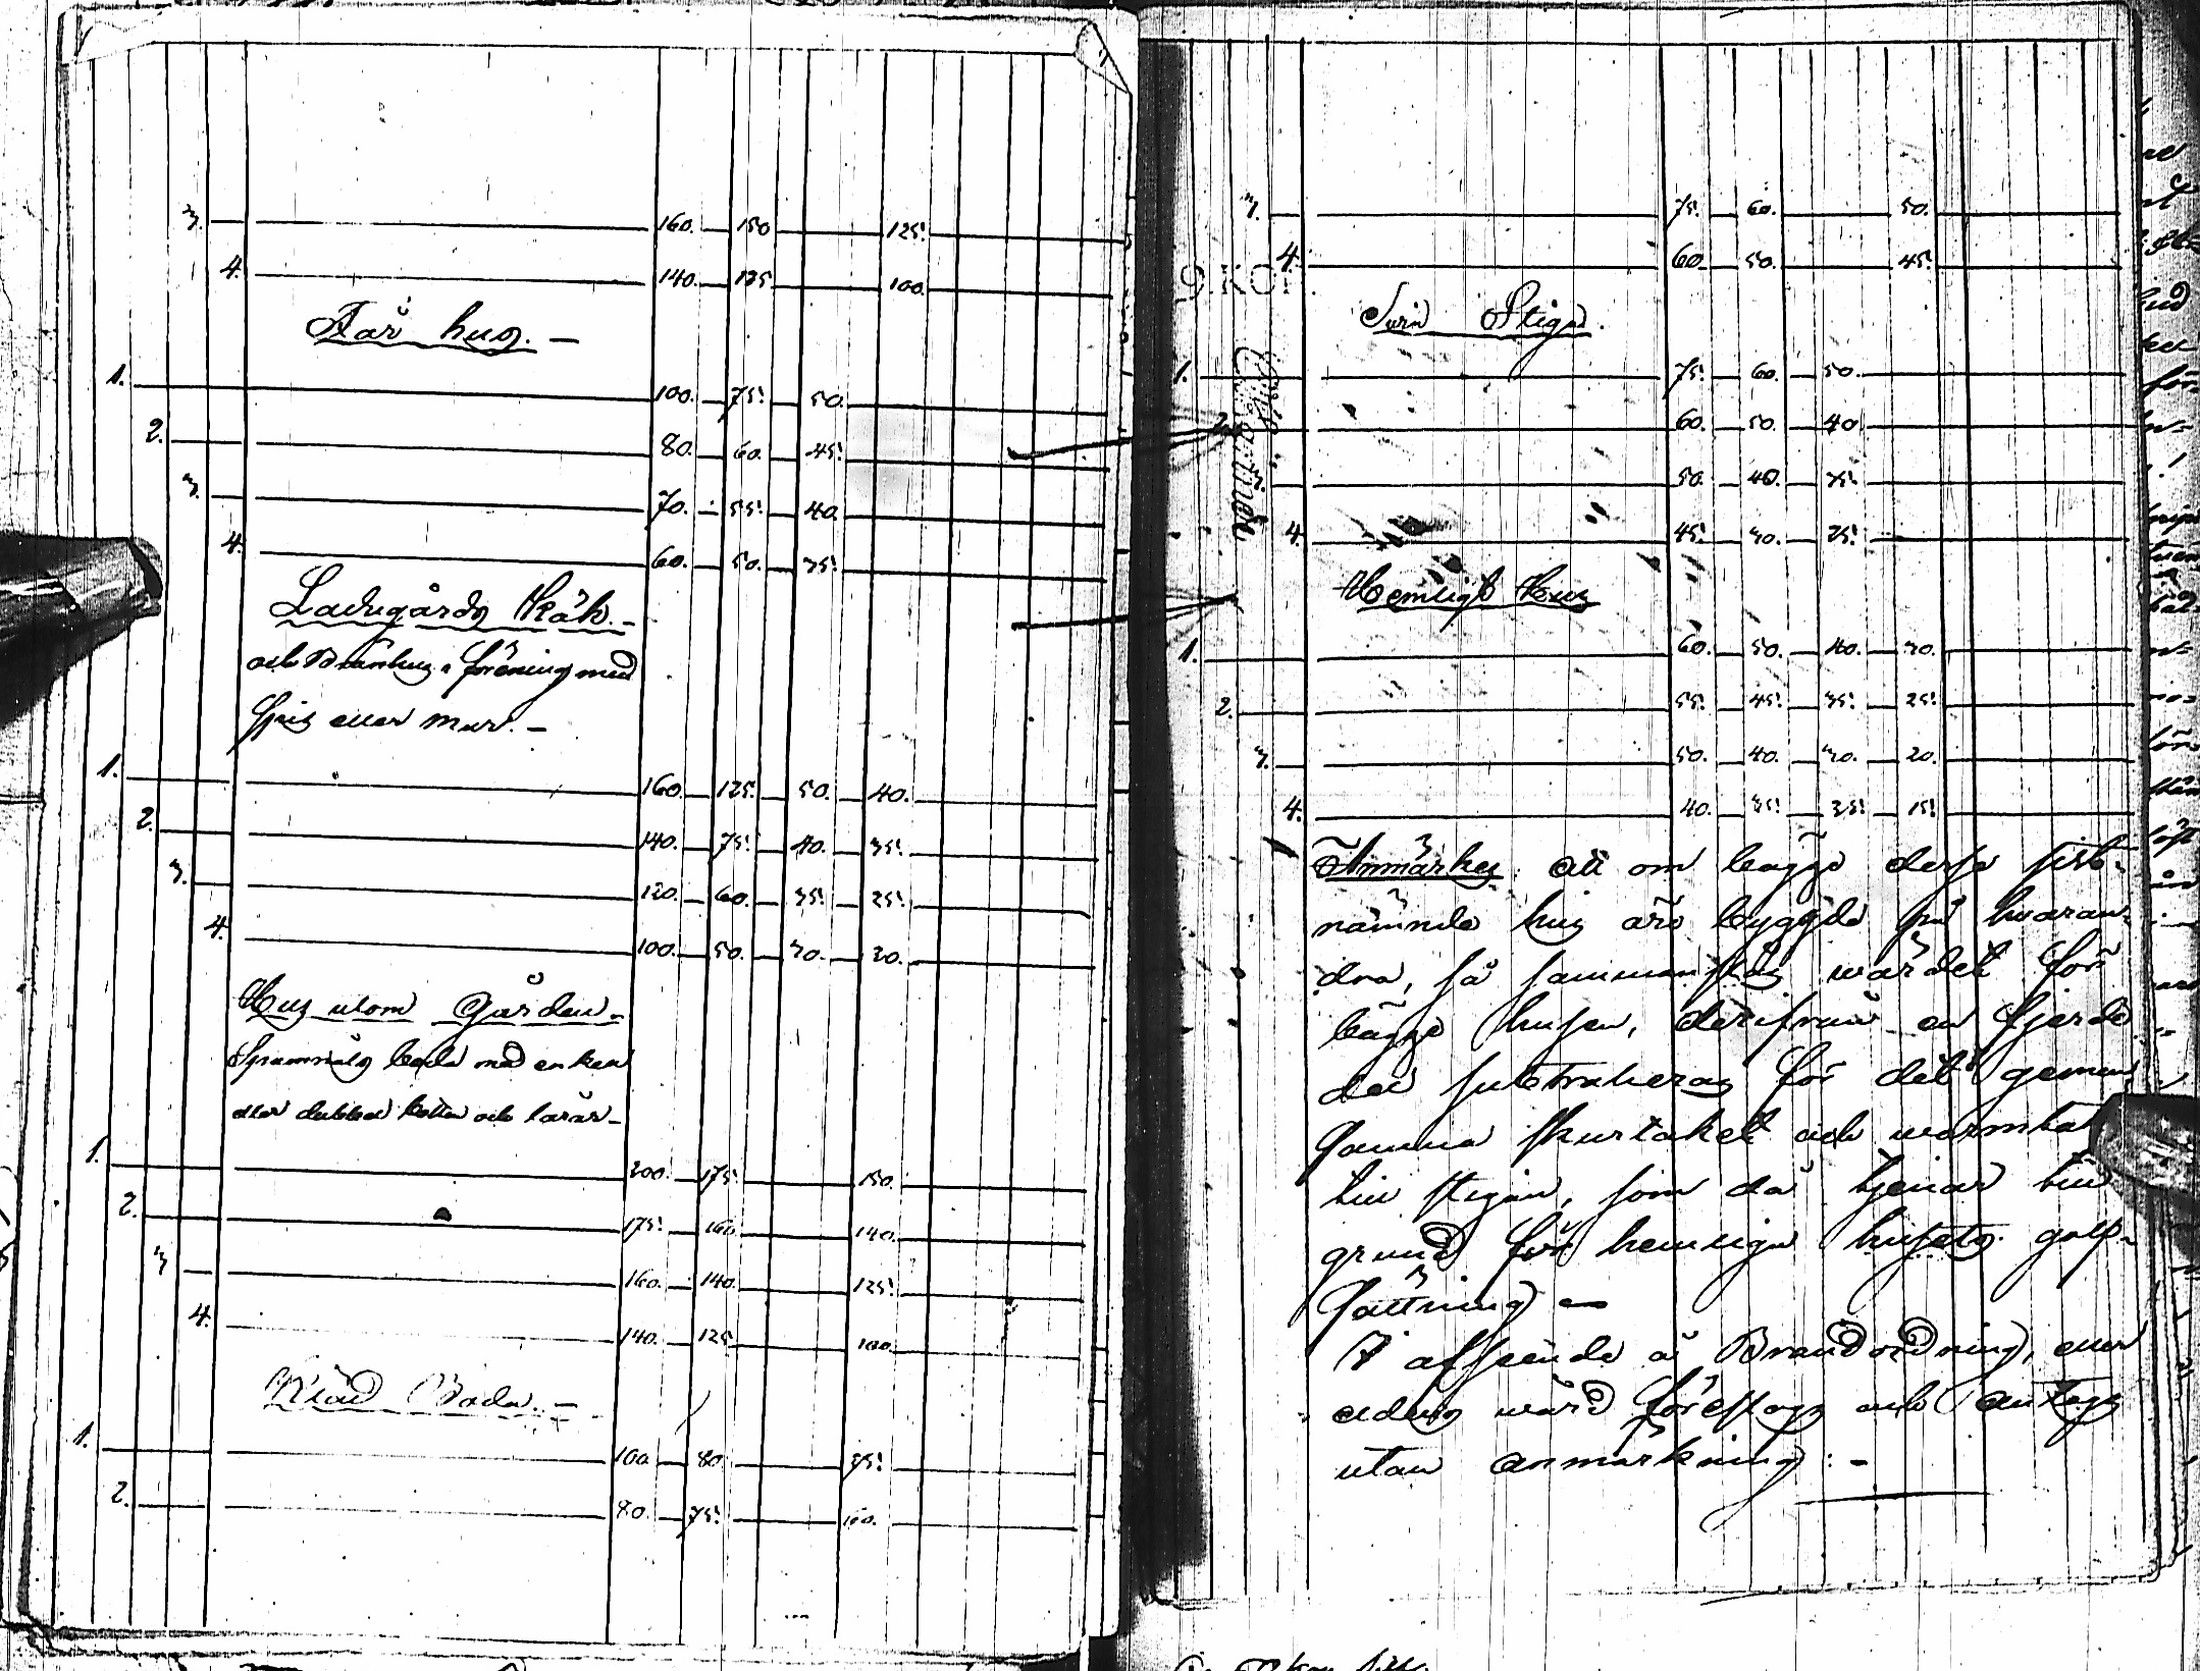 3. 160. 150 125.
4. 140. 125 100.
Får hus. –
1. 100. 75. 50.
2. 80. 60. 45.
3. 70. 55. 40.
4. 60. 50. 35.
Ladugårds Kök. –
och Brånhus i förening med
Spis eller mur. –
1. 160. 125. 50. 40.
2. 140. 75. 40. 35.
3. 120. 60. 35. 25.
4. 100. 50. 30. 20.
Hus utom Gården.
Spanmåls bod med enkel
eller dubbel botten och lårar –
1. 200. 175. 150.
2. 175. 160 140.
3 160. 140. 125.
4. 140. 125 100.
Bod. –
1. 100. 80
2. 80. 75.
3. 75. 60. 50.
4. 60. 50. 45.
Svin Stiga.
1. 75. 60. 50.
60. 50. 40
50. 40. 35.
4. 45. 30. 25.
Hemligt Hus
1. 60. 50. 40. 30.
2. 55. 45. 35. 25.
3. 50. 40. 30. 20.
4. 40. 35. 25. 15.
Anmärkes att om bägge dessa sist-
nämnde hus äro byggde på hvaran-
dra, så sammanslås wärdet för
bägge husen, derifrån en fjerde
del subtraheras för det gemen
samma skurtaket och
till stigan, som då tjenar till
grund för hemliga husets golf-
sättning –
I afseende å Brandordning, eller
eldens wård föreslogs och antogs
utan anmärkning: –